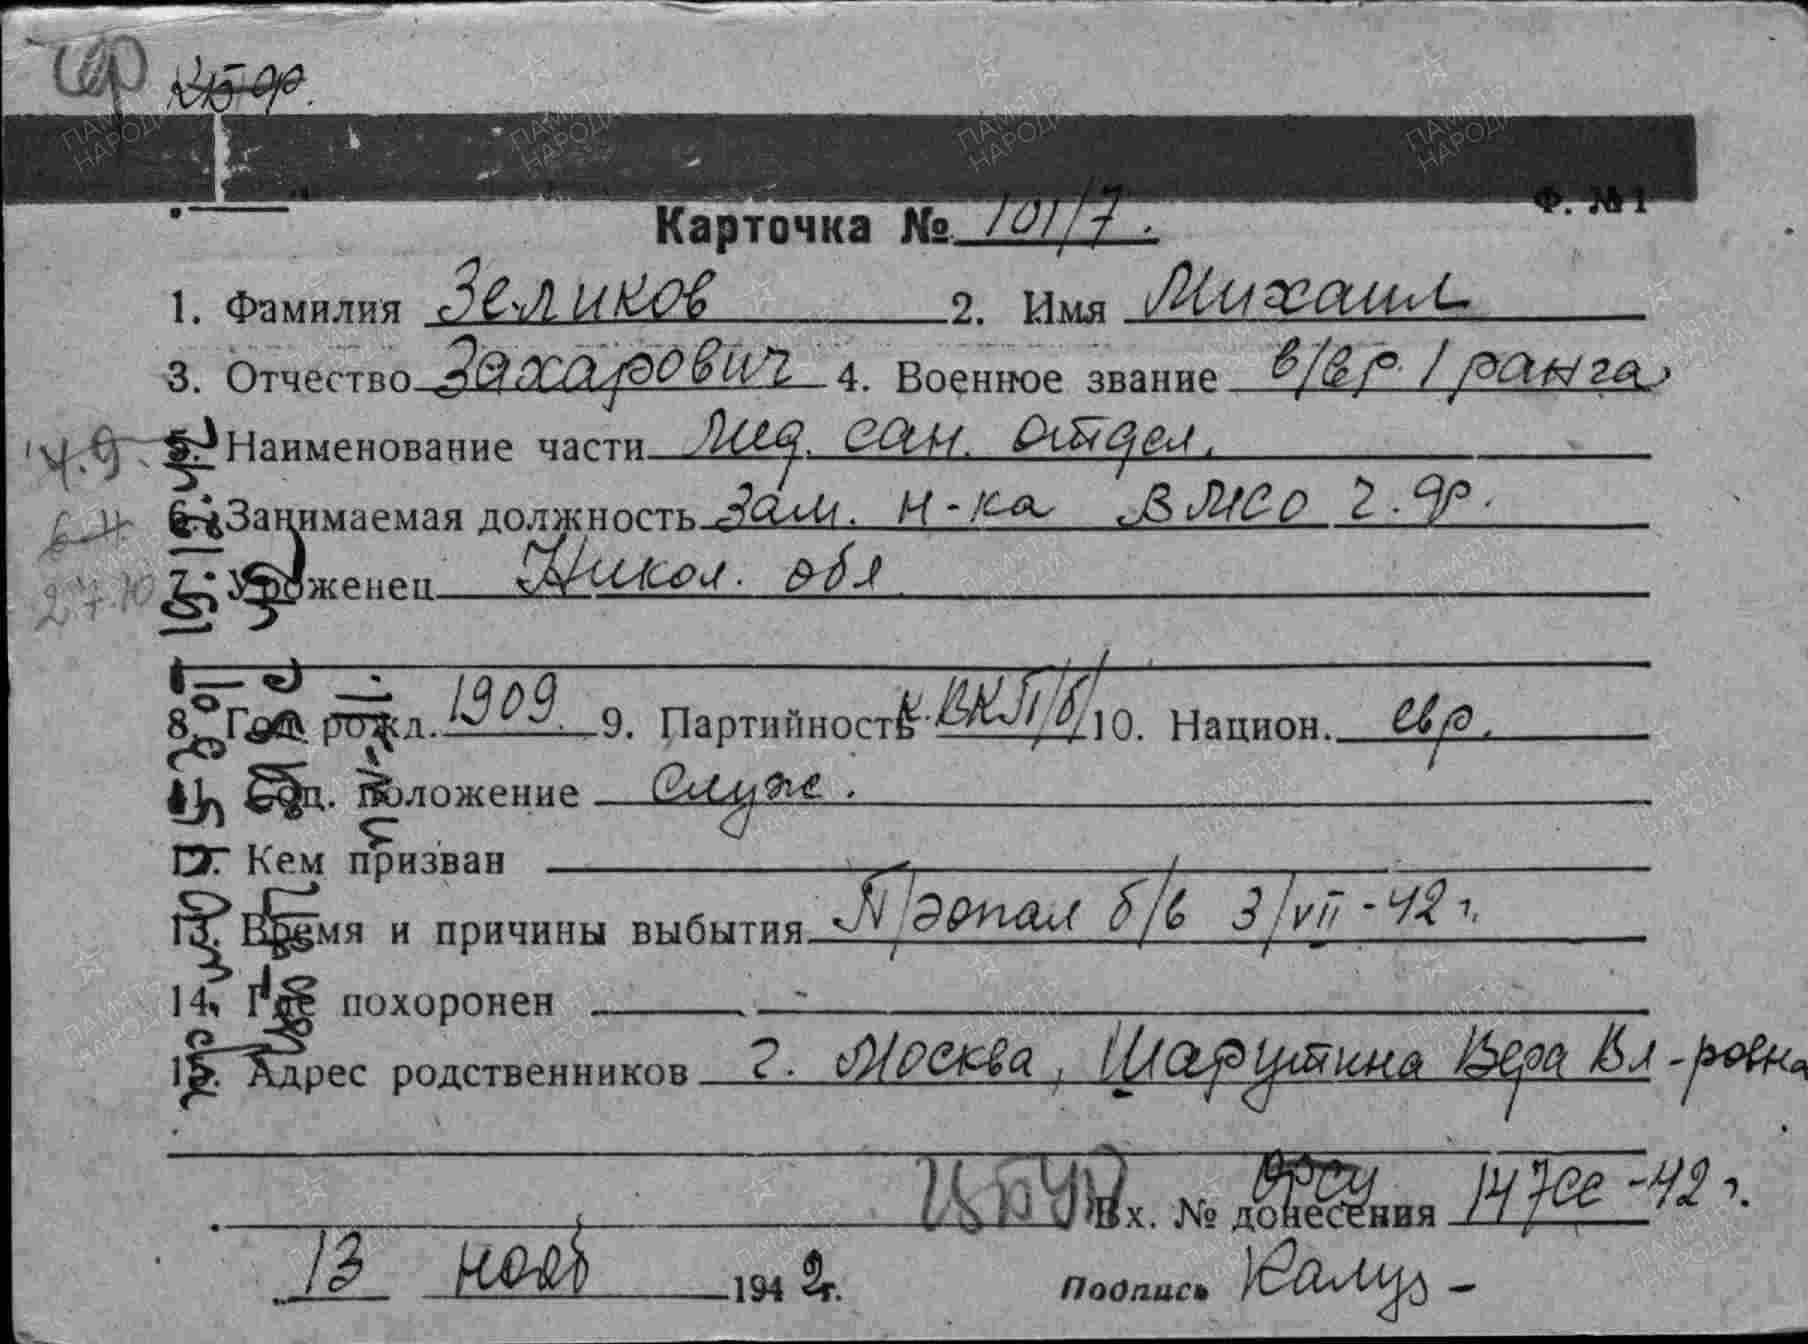 Ф. № 1
Карточка № 101/7.
1. Фамилия Зеликов 2. Имя Михаил
3. Отчество Захарович 4. Военное звание в/вр. 1 ранга
5. Наименование части Мед. сан. отдел.
6. Занимаемая должность Зам. н-ка ВМСО Ч.Ф.
7. Уроженец Никол. обл
8. Год рожд. 1909. 9. Партийность к. ВКП/б/ 10. Национ. евр.
Соц. положение Служ.
12. Кем призван
13. Время и причины выбытия П/опал б/в 3/VII-42 г.
14. Где похоронен -
15. Адрес родственников г. Москва, Шарутина Вера Вл-ровна
Вх. № донесения 147сс-42 г.
13 нояб 1942г. Подпись
ПАМЯТЬ НАРОДА